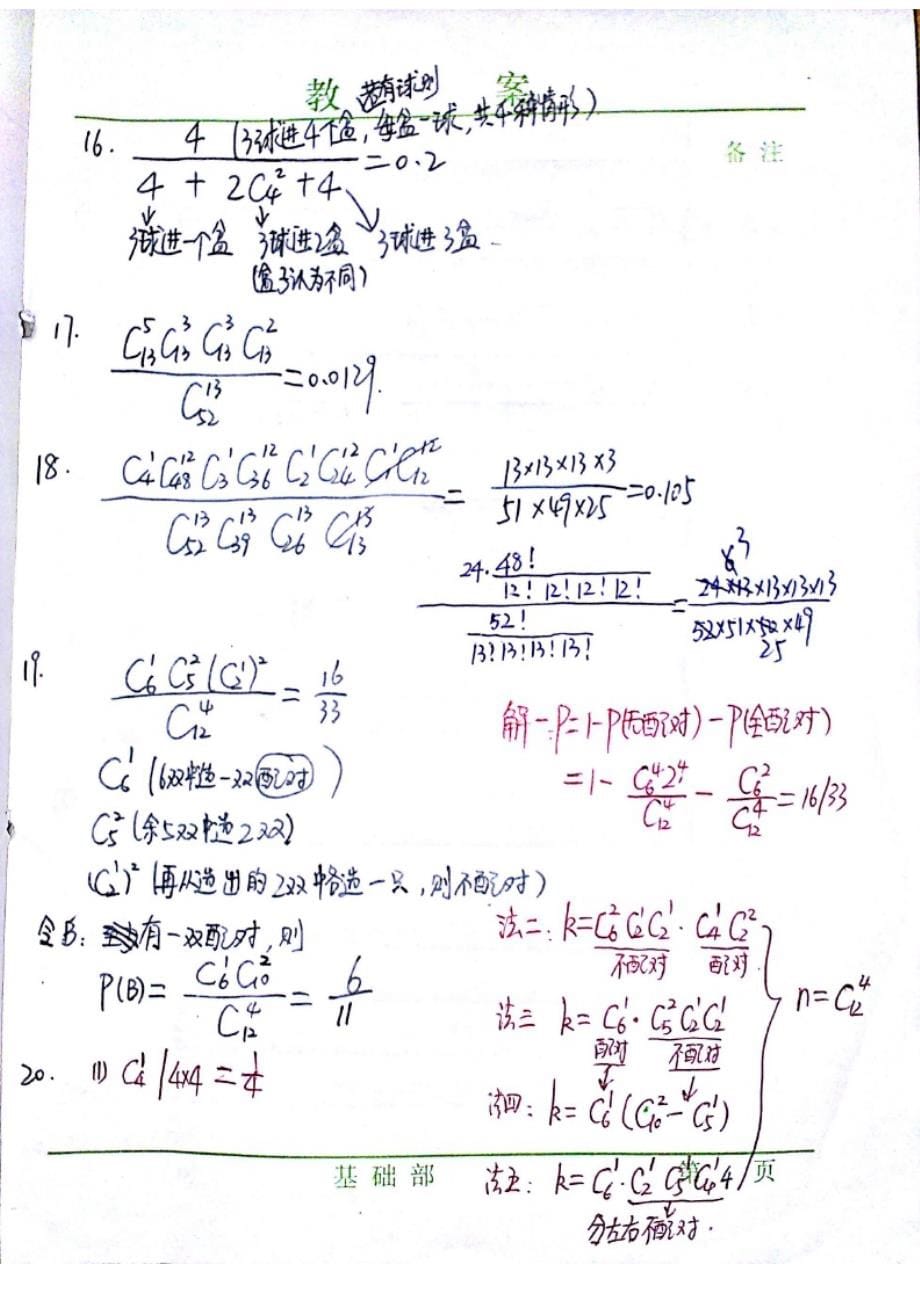 教 案
若有球则
16. 4 (3球进4个盒,每盒一球,共4种情形)
/ 4 + 2C₄² + 4 = 0.2
备 注
3球进一个盒 3球进2盒 3球进3盒
(盒子认为不同)
17. C₁₃⁵C₁₃³C₁₃³C₁₃² / C₅₂¹³ = 0.0129.
18. C₄¹C₄₈¹²C₃¹C₃₆¹²C₂¹C₂₄¹²C₁¹C₁₂¹² / C₅₂¹³C₃₉¹³C₂₆¹³C₁₃¹³ = 13×13×13×3 / 51×49×25 = 0.105
24·48! / 12!12!12!12!
52! / 13!13!13!13!
= 24×13×13×13×13 / 52×51×50×49
6 3
25
19. C₆¹C₅²(C₂¹)² / C₁₂⁴ = 16/33
解一:P=1-P(无配对)-P(全配对)
=1- C₆⁴·2⁴/C₁₂⁴ - C₆²/C₁₂⁴ = 16/33
C₆¹ (6双中选一双配对)
C₅² (余5双中选2双)
(C₂¹)² (再从选出的2双中各选一只,则不配对)
令B: 有一双配对,则
P(B)= C₆¹C₁₀² / C₁₂⁴ = 6/11
法二: k=C₆²C₂¹C₂¹·C₄¹C₂²
不配对 配对
法三 k=C₆¹·C₅²C₂¹C₂¹
配对 不配对
n=C₁₂⁴
法四: k=C₆¹(C₁₀²-C₅¹)
20. (1) C₄¹/4×4=1/4
基 础 部 第 页
法五: k=C₆¹·C₂¹C₅¹C₄¹4
分左右不配对.